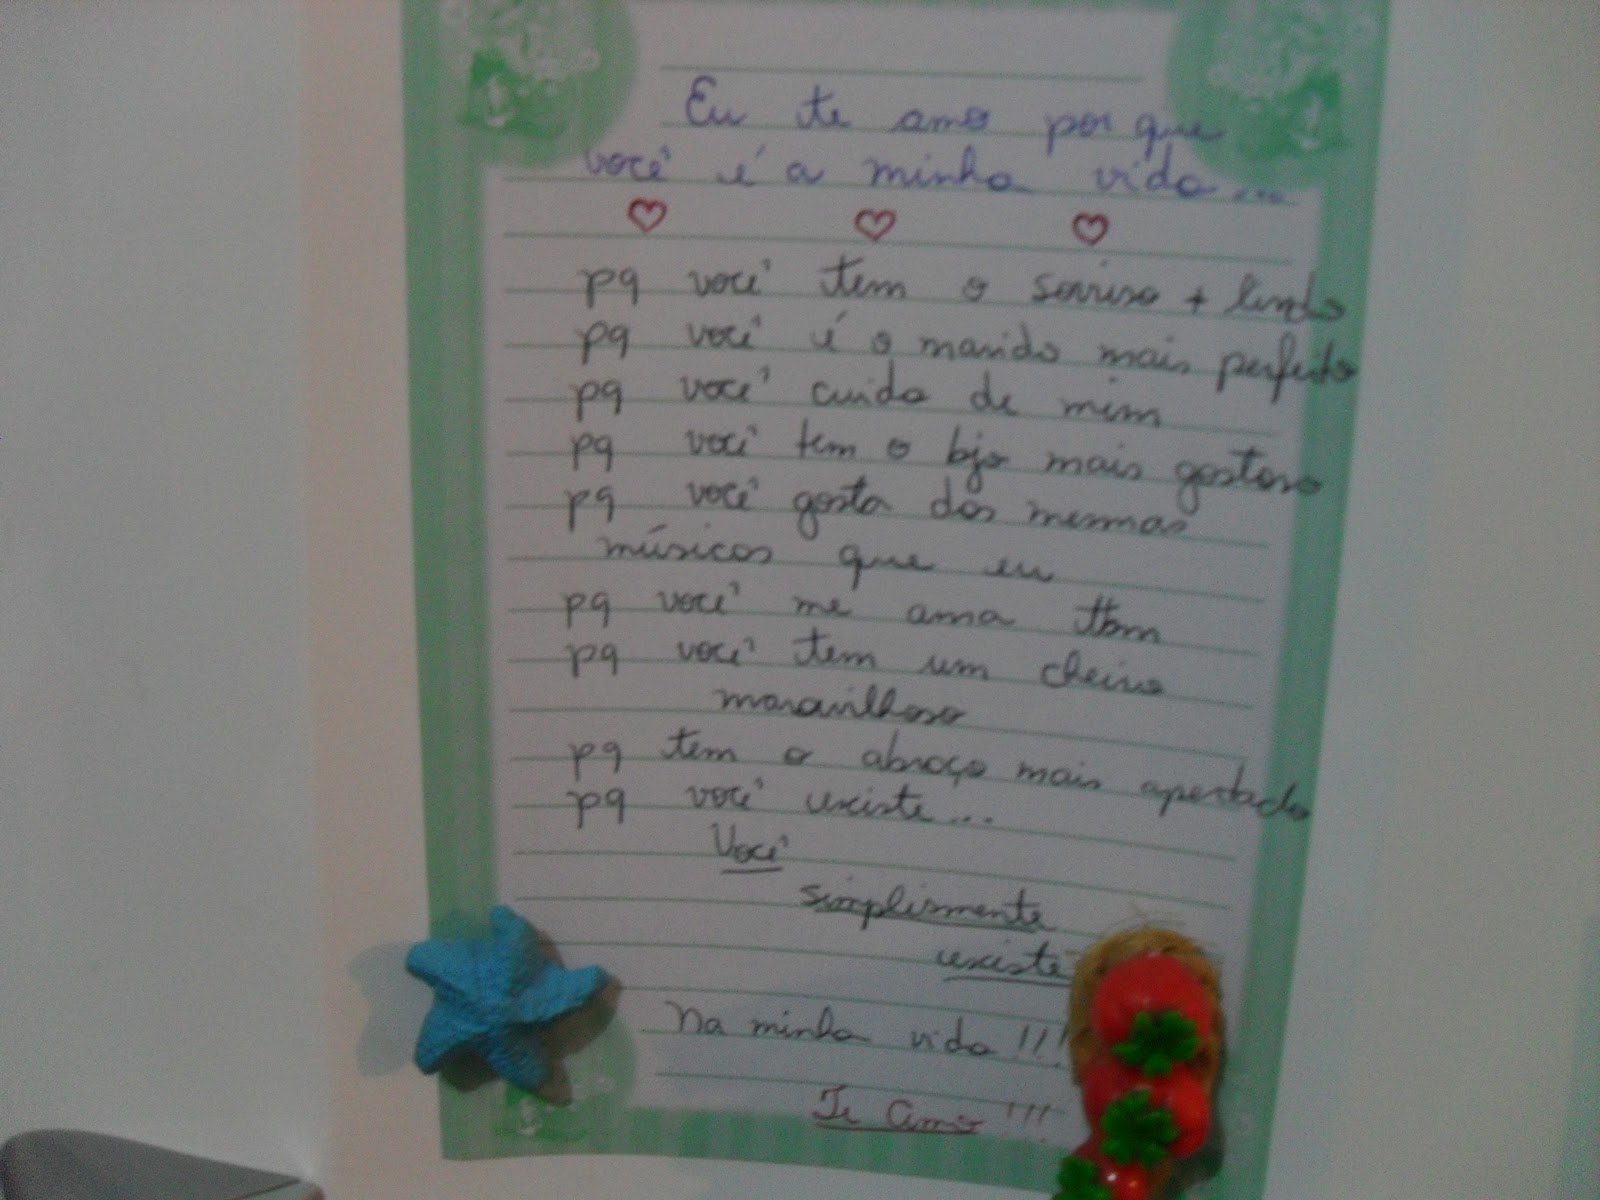 Eu te amo por que
você é a minha vida...
pq você tem o sorriso + lindo
pq você é o marido mais perfeito
pq você cuida de mim
pq você tem o bjo mais gostoso
pq você gosta das mesmas
músicas que eu
pq você me ama tbm
pq você tem um cheiro
maravilhoso
pq tem o abraço mais apertado
pq você existe...
Você
simplismente
existe
Na minha vida!!!
Te Amo!!!